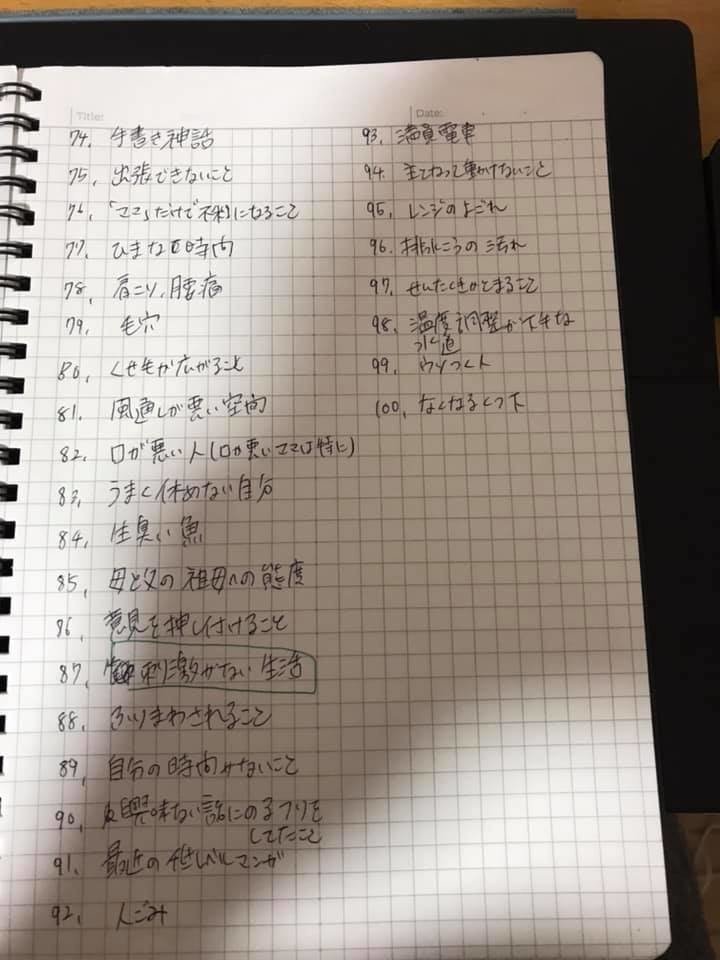 Title:
Date:
74. 手書き神話
75. 出張できないこと
76. 「ママ」だけで不利になること
77. ひまな時間
78. 肩こり、腰痛
79. 毛穴
80. くせ毛が広がること
81. 風通しが悪い空間
82. 口が悪い人(口が悪いママは特に)
83. うまく休めない自分
84. 生臭い魚
85. 母と父の祖母への態度
86. 意見を押し付けること
87. 刺激がない生活
88. ふりまわされること
89. 自分の時間がないこと
90. 興味ない話にのるフリを
してたこと
91. 最近の低レベルマンガ
92. 人ごみ
93. 満員電車
94. 動けないこと
95. レンジのよごれ
96. 排水こうの汚れ
97. せんたくきがとまること
98. 温度調整が下手な
水道
99. ウソつく人
100. なくなるくつ下